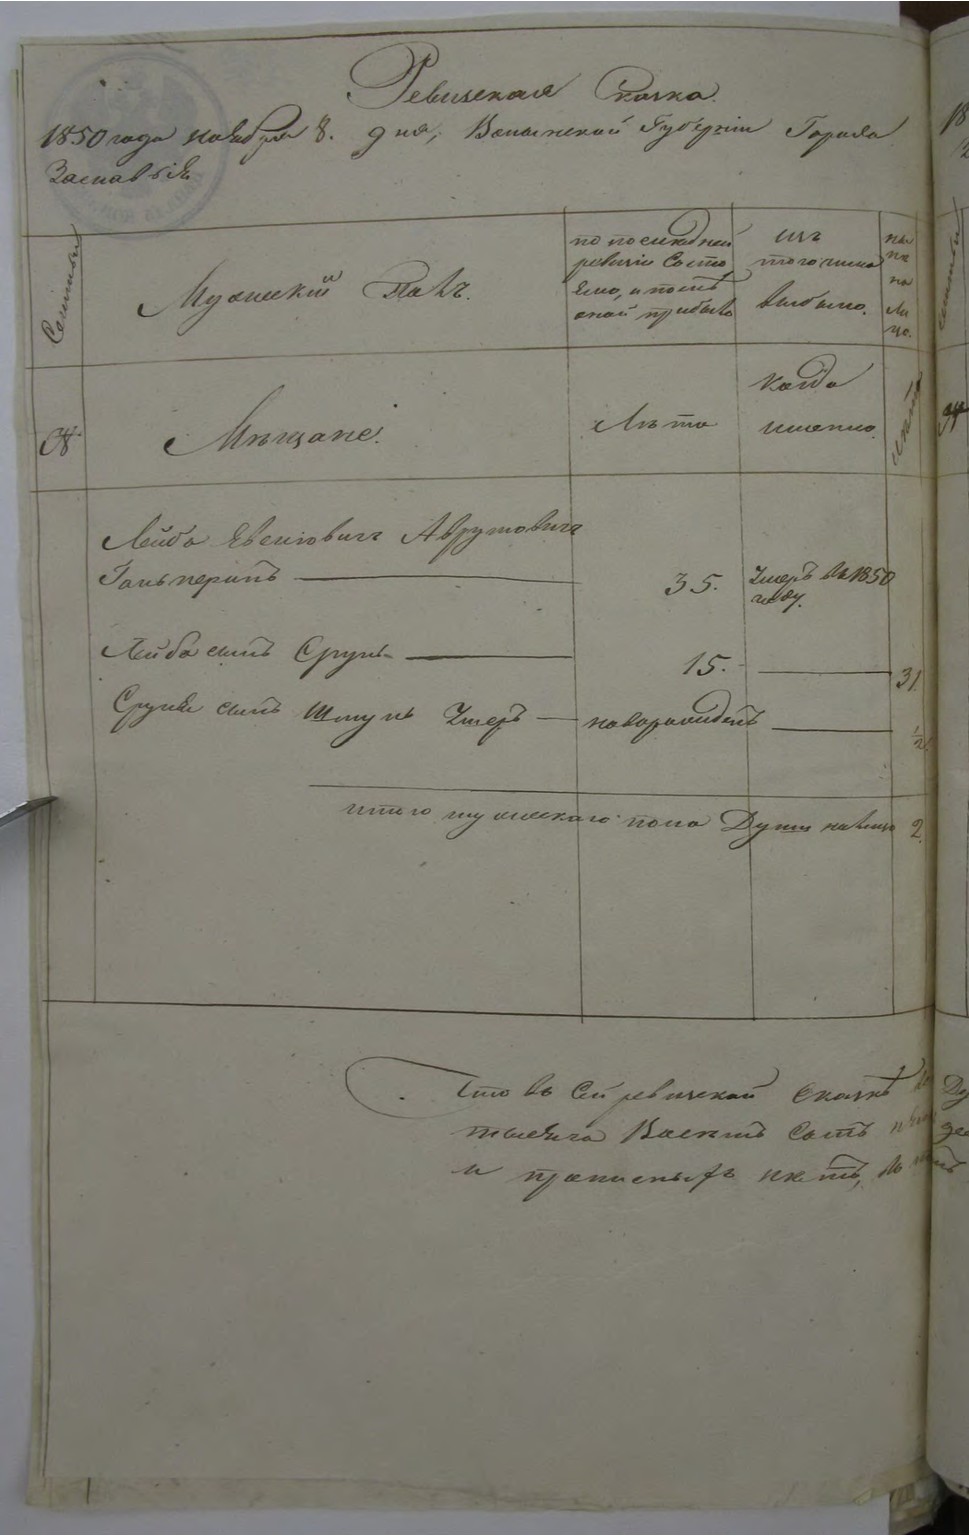 Ревизская Сказка.
1850 года ноября 8. дня, Волынской Губернiи Города
Заславля
Семьи
Мужескiй Полъ.
по последней
ревизiи Состо
яло, и после
оной прибыло
изъ
того числа
выбыло.
ны
не
на
ли
цо.
№
Мѣщане.
Лѣта
когда
именно.
лѣта
Лейба Евелiовичъ Аврумовичъ
Гальперинъ
35.
Умеръ въ 1850
году.
Лейба сынъ Сруль
15.
31.
Сруля сынъ Шмуль Умеръ
новорожденъ
1/2
итого мужескаго пола Душъ налицо 2.
Что въ сей ревизской сказкѣ
и прописныхъ нѣтъ, въ